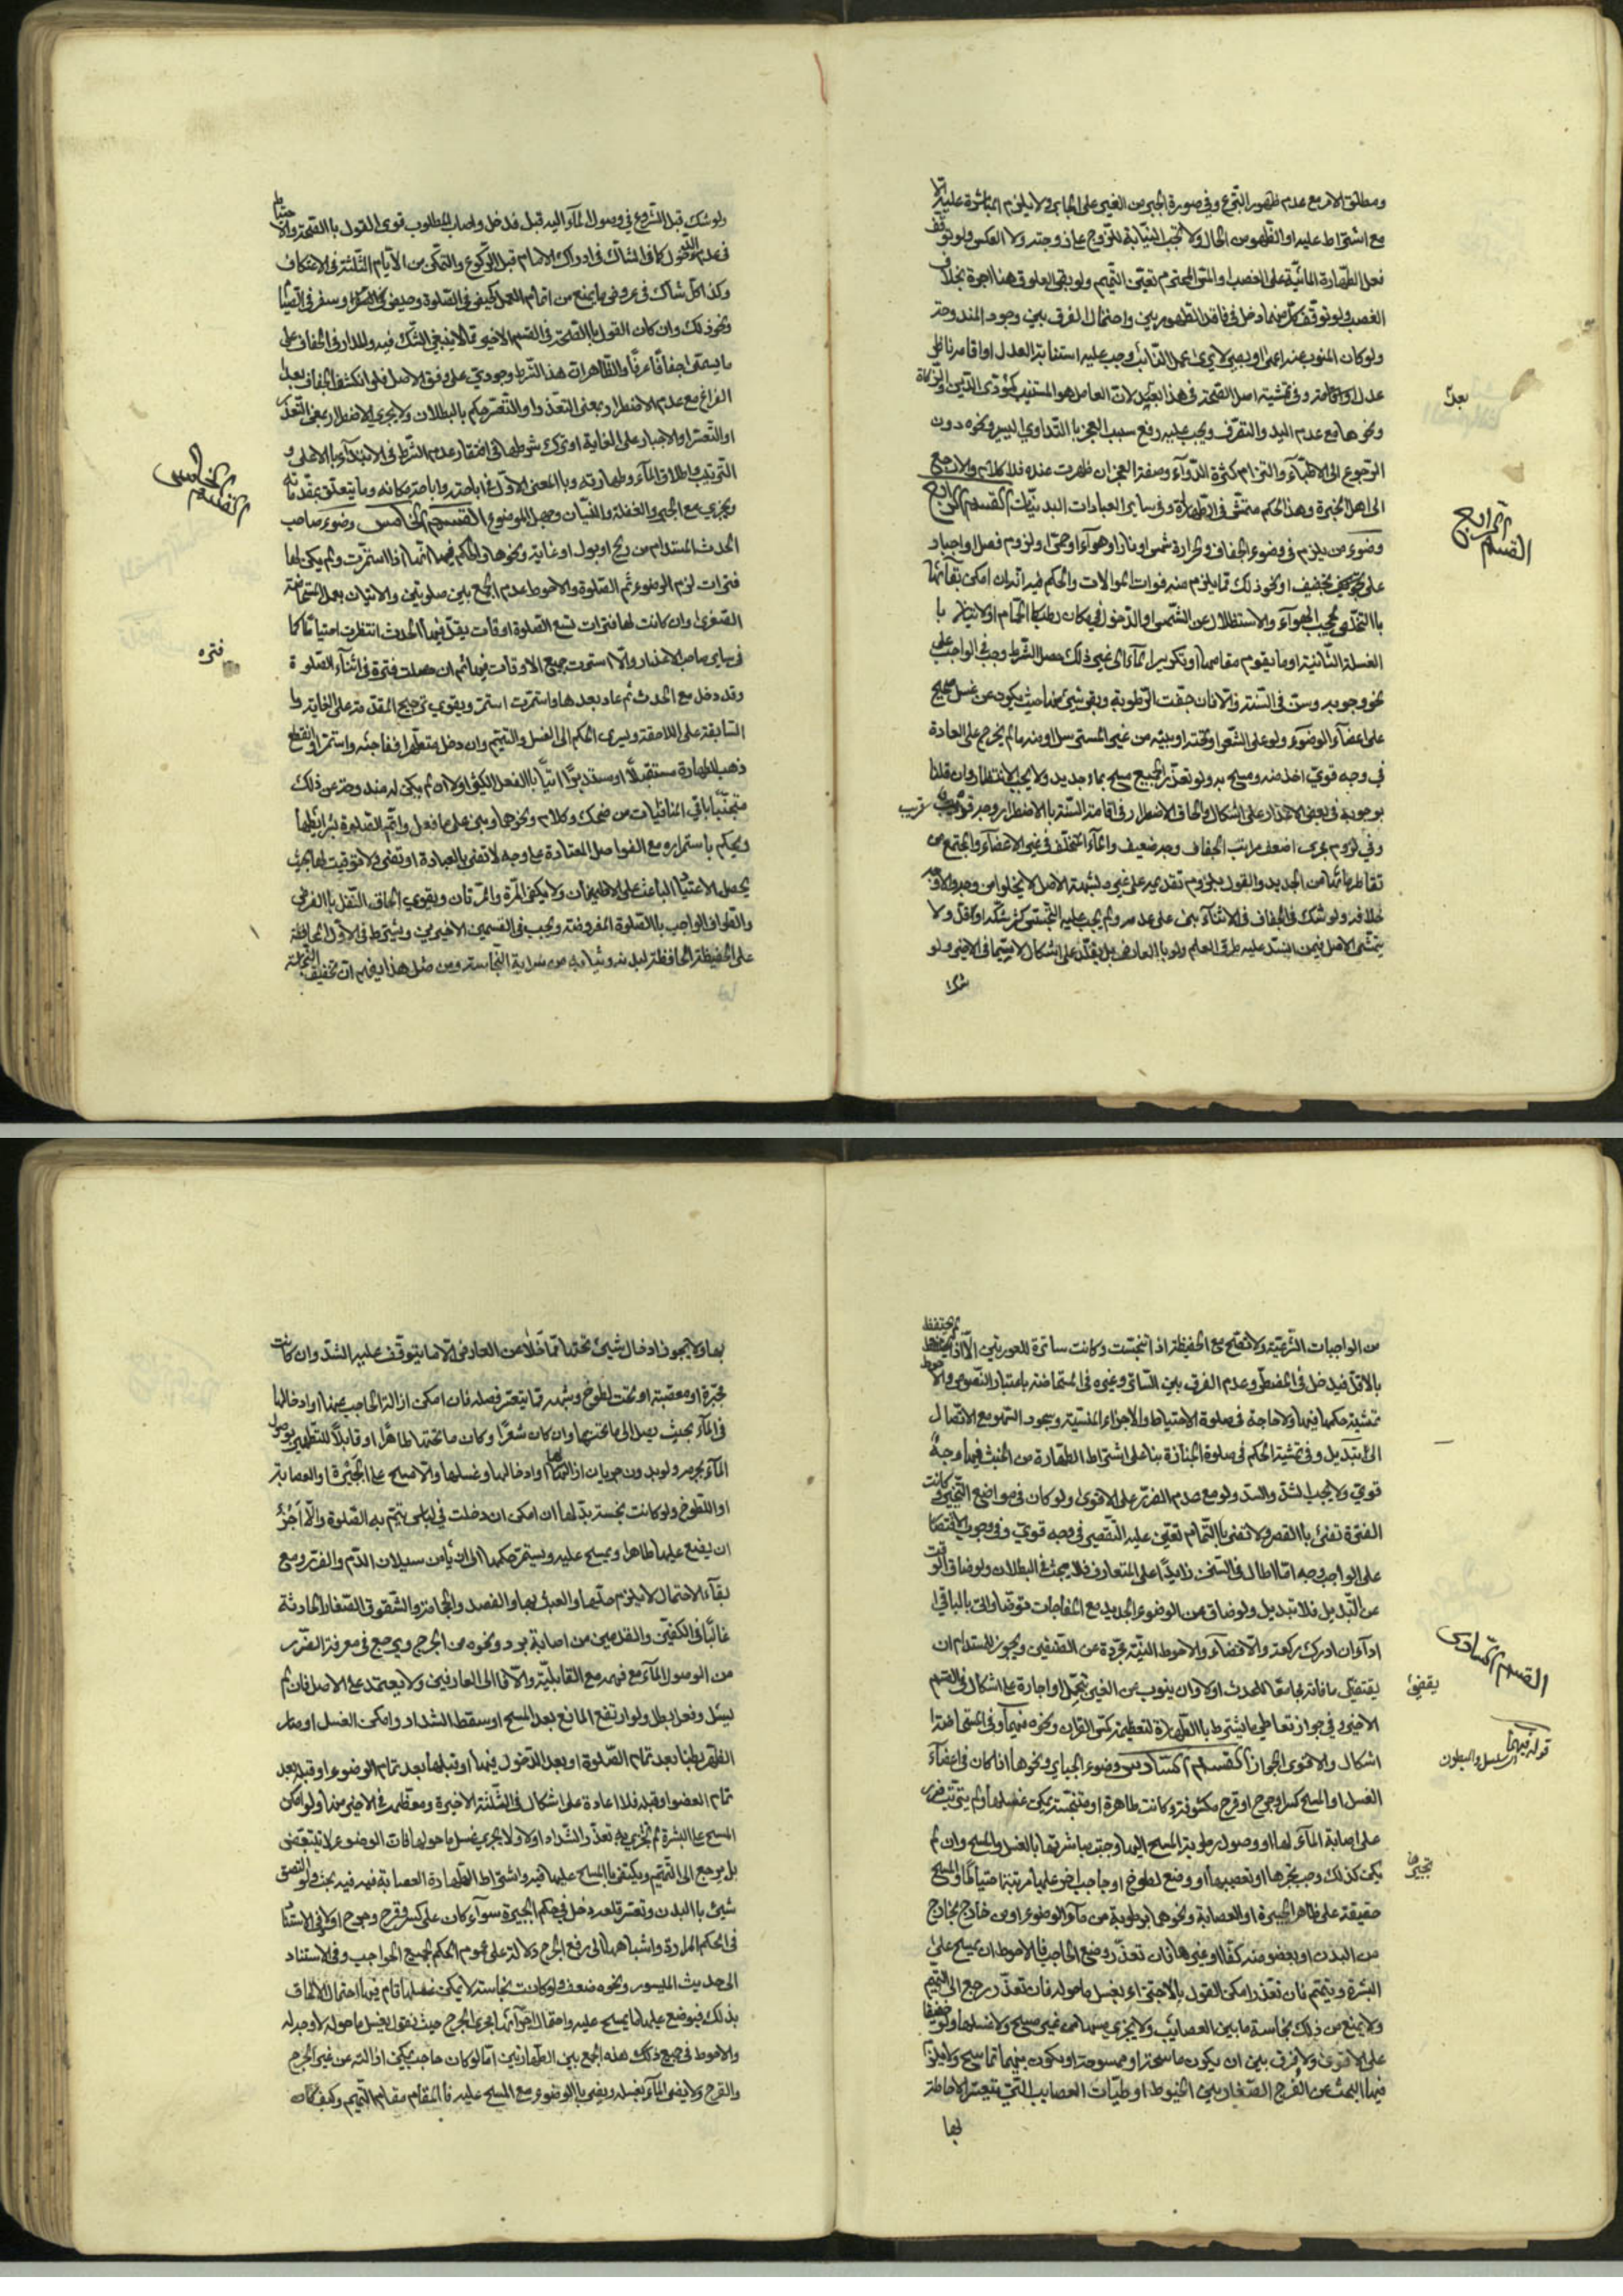 ومطلق الامر مع عدم ظهور التبرع وفي صورة الجبر من الغير على الجابر ولا يلزم المباشرة عليه الا
مع اشتراط عليه او الظهور من الحال ولا تجب النيابة للزوج عن زوجته ولا العكس ولو توقف
فعل الطهارة المائية على الغصب والمس المحترم تعين التيمم ولو بقي العلوق هنا اجرة بخلاف
الغصب ولو توقف كل منهما دخل في فاقد الطهورين واحتمال الفرق بين وجود المندوحة
ولو كان المنوب عنه اعمى او بصير لا يرى عمل النائب وجب عليه استنابة العدل او اقامة ناظر
عدل او اقامته وفي تمشية اصل الصحة في هذا بعيد لان العامل هو المستنيب كمؤدي الدين والزكاة
ونحوها مع عدم اليد والتصرف ويجب عليه رفع سبب العجز بالتداوي اليسير ونحوه دون
الرجوع الى الاطباء والتزام كثرة الدواء وصفة العجز ان ظهرت عنده فلا كلام والا رجع
الى اهل الخبرة وهذا الحكم متمش في الطهارة وفي ساير العبادات البدنيات القسم الرابع
وضوء من يلزم في وضوء الجفاف لحرارة شمس او نار او هواء او حمى ولزوم فصل او اجبار
على تخفيف او نحو ذلك مما يلزم منه فوات الموالات والحكم فيه انه ان امكن بقائها
باالتحفظ بحجب الهواء والاستظلال عن الشمس او الدخول في مكان رطب كالحمام او لا
الغسلة الثانية او ما يقوم مقامها او تكرير الماء الى غير ذلك حصل الشرط وجب في الواجب على
نحو وجوبه وسن في السنة والا فان جفت الرطوبة وبقي شيء منها حيث يكون عن غسل صحيح
على اعضاء الوضوء ولو على الشعر او تحته او بينه من غير المسترسل او منه ما لم يخرج على العادة
في وجه قوي اخذ منه ومسح به ولو تعذر الجميع مسح بماء جديد ولا يجب الانتظار وان قلنا
بوجوبه في بعض الاعذار على اشكال والحاق الاضطرار في اقامة السنة بالاضطرار وجه قريب
وفي لزوم تحري اضعف مراتب الجفاف وجه ضعيف والماء المتخلف في غير الاعضاء والمجتمع من
تقاطر مائها من الجديد والقول بلزوم تقديمه على غيره لشبهة الاصل لا يخلو من وجه والاوجه
خلافه ولو شك في الجفاف في الاثناء بنى على عدمه ولم يجب عليه التجسس كثر شكه او قل ولا
يتمشى الاصل فيمن انسد عليه طرق العلم ولو بالعارض بل يقلد على اشكال لا سيما في الاخير ولو
شك
بعد
القسم الرابع
ولو شك قبل الشروع في وصول الماء اليه قبل فدخل واصاب المطلوب قوي القول باالصحة والاحتياط
في عدم الدخول كما في الشاك في ادراك الامام قبل الركوع والتمكن من الايام الثلثة في الاعتكاف
وكذا كل شاك في عروض ما يمنع من اتمام العمل كحيض في الصلوة وحيض وسفر في الصيام
ونحو ذلك وان كان القول باالصحة في القسم الاخير مما لا ينبغي الشك فيه والمدار في الجفاف على
ما يسمى جفافا عرفا والظاهر ان هذا الشرط وجودي على وفق الاصل فلو انكشف الجفاف بعد
الفراغ مع عدم الاضطرار بمعنى التعذر او التعسر حكم بالبطلان ولا يجري الاضطرار بمعنى التعذر
او التعسر او الاجبار على الغاية او ترك شرطها في اغتفار عدم الشرط في الابتداء بالاعلى و
الترتيب واطلاق الماء وطهارته وباالمعنى الاول في اباحته واباحة مكانه وما يتعلق بمقدماته
ويجري مع الجبر والغفلة والنسيان وجهل الموضوع القسم الخامس وضوء صاحب
الحدث المستدام من ريح او بول او غاية ونحوها والحكم فيها انها اذا استمرت ولم يكن لها
فترات لزم الوضوء ثم الصلوة والاحوط عدم الجمع بين صلوتين والاتيان بعمل المستحاضة
الصغرى وان كانت لها فترات تسع الصلوة اوقات يقل فيها الحدث انتظرت احتياطا كما
في ساير صاحب الاعذار والا استمرت جميع الاوقات فيها ثم ان حصلت فترة في اثناء الصلوة
وقد دخل مع الحدث ثم عاد بعدها واستمرت استمر ويقوى ترجيح المقدمة على الغاية
السابقة على اللاحقة ويسري الحكم الى الغسل والتيمم وان دخل متطهرا ففاجئه واستمر او انقطع
ذهب للطهارة مستقبلا او مستدبرا اتيا باالفعل الكثير او لا ان لم يكن له مندوحة عن ذلك
متجنبا باقي المنافيات من ضحك وكلام ونحوهما وبنى على ما فعل واتم الصلوة بشرايطها
ويحكم باستمراره مع الفواصل المعتادة على وجه لا تفي بالعبادة او تفي ولا توقيت لها بحيث
يحصل الاعتياد الباعث على الاطمينان ولا يكفي المرة والمرتان ويقوى الحاق النفل باالفرض
والطواف الواجب باالصلوة المفروضة ويجب في القسمين الاخيرين ويشترط في الاول المحافظة
على الحفيظة الحافظة لبدنه وثيابه من سراية النجاسة ومن مثل هذا يفهم ان تخفيف النجاسة
القسم الخامس
فتره
من الواجبات الشرعية ولا تقدح مع الحفيظة اذا تنجست وكانت ساترة للعورتين الا اذا لم يحتفظ
بالاقل فيدخل في المضطر وعدم الفرق بين الساتر وغيره في المستحاضة باعتبار النصوص والاحوط
تمشية حكمها فيها ولا حاجة في صلوة الاحتياط والاجزاء المنسية وسجود السهو مع الاتصال
الى تبديل وفي تمشية الحكم في صلوة الجنازة بناء على اشتراط الطهارة من الخبث فيها وجه
قوي ولا يجب الشد والسد ولو مع عدم الضرر على الاقوى ولو كان في مواضع التخيير وكانت
الفترة تفي باالقصر ولا تفي باالتمام تعين عليه التقصير في وجه قوي وفي وجوب الاقتصار
على الواجب وجه اما اطال في السنن زايدا على المتعارف فلا بحث في البطلان ولو ضاق الوقت
عن التبديل فلا تبديل ولو ضاق عن الوضوء الجديد مع المفاجات توضأ واتى بالباقي
اداء ان ادرك ركعة والا قضاء والاحوط النية مجردة عن الصنفين ويجوز للمستدام ان
يقضي ما فاته مجامعا للحدث اولا وان ينوب عن الغير بتحمل او اجارة على اشكال في القسم
الاخير وفي جواز تعاطي ما يشترط باالطهارة لتعظيمه كمس القران ونحوه فيها وفي المستحاضة
اشكال والاقوى الجواز القسم السادس وضوء الجباير ونحوها اذا كان في اعضاء
الغسل او المسح كسر او جرح او قرح مكشوفة وكانت طاهرة او متنجسة يمكن غسلها ولم يترتب ضرر
على اصابة الماء لها او وصول رطوبة المسح اليها وجبت مباشرتها بالغسل والمسح وان لم
يكن كذلك وجب تجبيرها او تعصيبها او وضع لطوخ او حاجب اخر عليها مرتبة احتياطا والمسح
حقيقة على ظاهر الجبيرة او العصابة ونحوهما برطوبة من ماء الوضوء او من خارج بخارج
من البدن او بعضو منه كفا او غيرها فان تعذر وضع الحاجب فا الاحوط ان يمسح على
البشرة ويتيمم فان تعذر امكن القول بالاجتزاء بغسل ما حوله فان تعذر رجع الى التيمم
ولا يمنع من ذلك نجاسة ما بين العصائب ولا يجزي مسها من غير مسح ولا غسلها ولو خفيفا
على الاقوى ولا فرق بين ان يكون ماسحة او ممسوحة او يكون بينهما تماسح ولا يلزم
فيها البحث عن الفرج الصغار بين الخيوط او طيات العصايب التي تتعسر الاحاطة
بها
القسم السادس
يقضي
قوله فيهما السلسل والبطون
تجبيرها
بها ولا يجوز ادخال شيء تحتها مما خلا عن العارض الا ما يتوقف عليه الشد وان كانت
مجبرة او معصبة او تحت لطوخ وشبهه مما يتعسر فصله فان امكن ازالة الحاجب عنها او ادخالها
في الماء بحيث يصل الى ما تحتها وان كان شعرا وكان ما تحتها طاهرا او قابلا للتطهير بوصول
الماء بجرمه ولو بدون جريان ازالتها او ادخالها وغسلها والا مسح على الجبيرة او العصابة
او اللطوخ ولو كانت نجسة بدلها ان امكن ان دخلت في لباس يتم به الصلوة والا اجزء
ان يضع عليها طاهرا ويمسح عليه ويستمر حكمها الى ان يأمن سيلان الدم والضرر ومع
بقاء الاحتمال لا يلزم حلها والعبث بها والفصد والحجامة والشقوق الصغار الحادثة
غالبا في الكفين والقدمين من اصابة برد ونحوه من الجرح ويرجع في معرفة الضرر
من الوصول الماء مع فهمه مع القابلية والا فالى العارفين ولا يعتمد على الاصل فان لم
يسئل وفعل بطل ولو ارتفع المانع بعد المسح او سقط الشداد وامكن الغسل او صار
الظهر بطنا بعد تمام الصلوة او بعد الدخول فيها او قبلها بعد تمام الوضوء او قبله بعد
تمام العضو او قبله فلا اعادة على اشكال في الثلثة الاخيرة ومعظمه في الاخير منها ولو امكن
المسح على البشرة لم يجزي به تعذر الشداد اولا ولا يجري غسل ما حولها فان الوضوء لا يتبعض
بل يرجع الى التيمم ويكتفى باالمسح عليها فيه واشتراط الطهارة العصابة فيه بحث ولو التصق
شيء باالبدن وتعسر قلعه دخل في حكم الجبيرة سواء كان على كسر وقرح وجرح او لا وفي الاستناد
في الحكم المرارة واشباهها الى رفع الحرج دلالة على عموم الحكم لجميع الحواجب وفي الاستناد
الى حديث الميسور ونحوه ضعف ولو كانت نجاسة لا يمكن غسلها قام فيها احتمال الالحاق
بذلك فيوضع عليها ما يمسح عليه واحتمال اجرائها مجرى الجرح حيث نقول بغسل ما حوله لا وجه له
والاحوط في جميع ذلك هذه الجمع بين الطهارتين اما لو كان حاجب يمكن ازالته عن غير الجرح
والقرح ولا يضر الماء بغسله ويضر باالوضوء مع المسح عليه فا المقام مقام التيمم وكيف كان